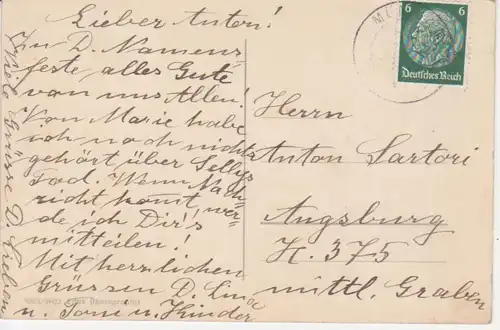 Lieber Anton!
Zu D. Namens-
feste, alles Gute
von uns Allen!
Von Marie habe
ich noch nichts
gehört über Sellys
Tod. Wenn Nach-
richt komt, wer-
de ich Dir's
mitteilen!
Mit herzlichen
Grüssen D. Linde
u. Toni u. Kinder
Viele Grüsse D.
6 6
Deutsches Reich
Herrn
Anton Sartori
Augsburg
H. 375
mittl. Graben